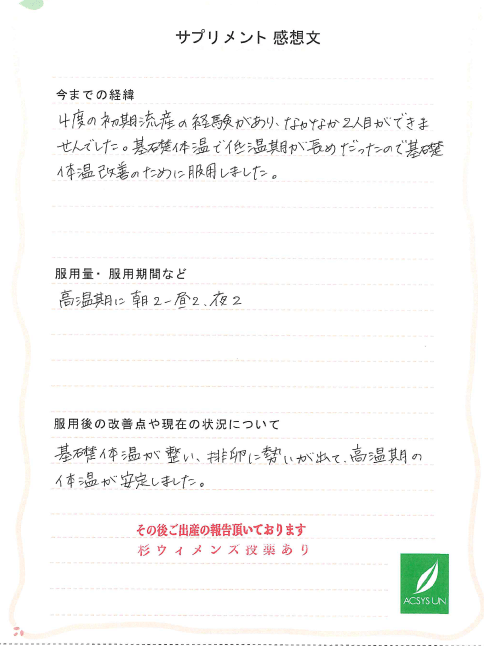 サプリメント 感想文
今までの経緯
4度の初期流産の経験があり、なかなか2人目ができま
せんでした。基礎体温で低温期が長めだったので基礎
体温改善のために服用しました。
服用量・服用期間など
高温期に 朝2-昼2、夜2
服用後の改善点や現在の状況について
基礎体温が整い、排卵に勢いが出て、高温期の
体温が安定しました。
その後ご出産の報告頂いております
杉ウィメンズ投薬あり
ACSYS UN